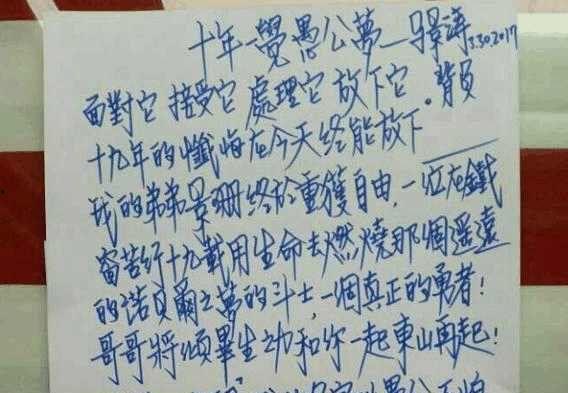 十年一覺愚公夢—馬景濤 3.30.2017
面對它 接受它 處理它 放下它。背負
十九年的懺悔在今天終能放下
我的弟弟景珊終於重獲自由,一位在鐵
窗苦行十九載用生命去燃燒那個遥遠
的諾貝爾之夢的斗士,一個真正的勇者!
哥哥將傾畢生之功和你一起東山再起!